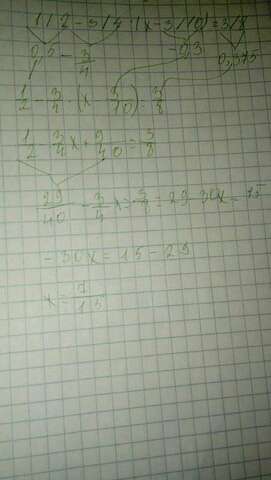 1/2 - 3/4 · (x - 3/10) = 3/8
0,5 - 3/4 - 0,3 0,375
1/2 - 3/4 · (x - 3/10) = 3/8
1/2 - 3/4 x + 9/40 = 3/8
29/40 - 3/4 x = 3/8 = 29 - 30x = 15
-30x = 15 - 29
x = 7/15